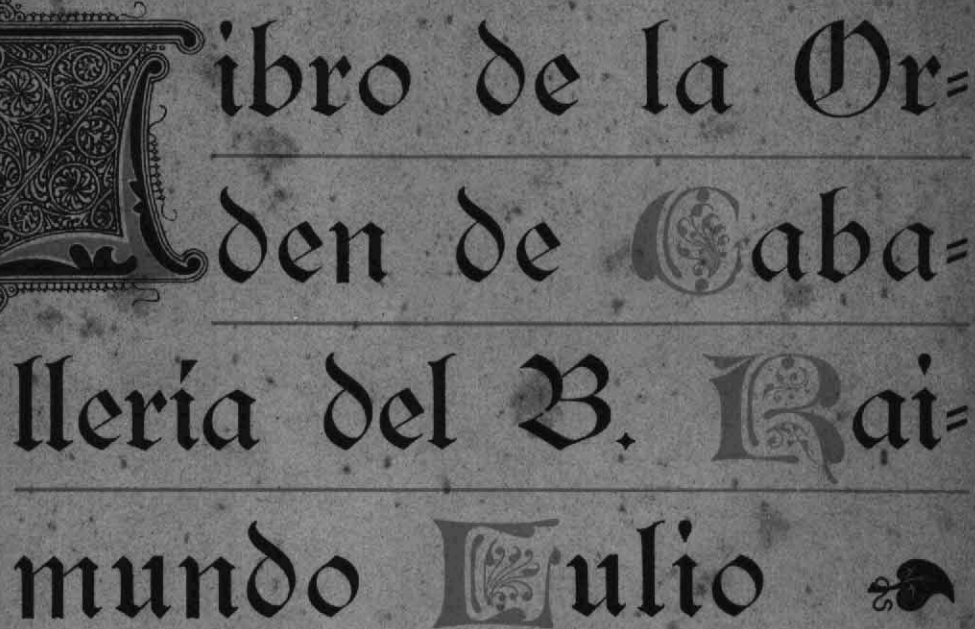 Libro de la Or=
den de Caba=
llería del B. Rai=
mundo Lulio